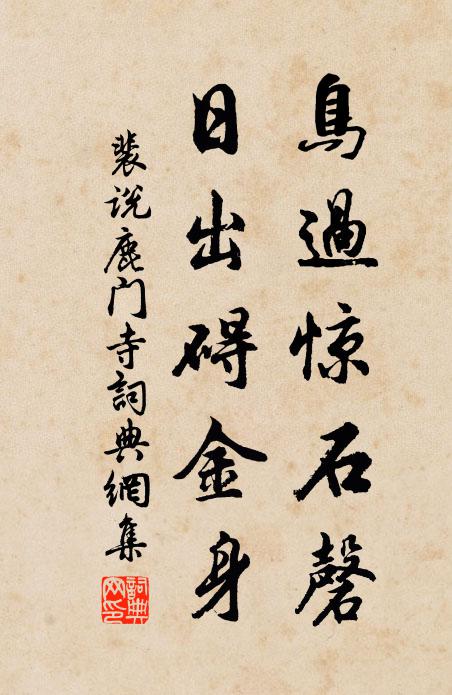 鳥過惊石磬
日出碍金身
裴説鹿门寺詞典網集
詞典网印